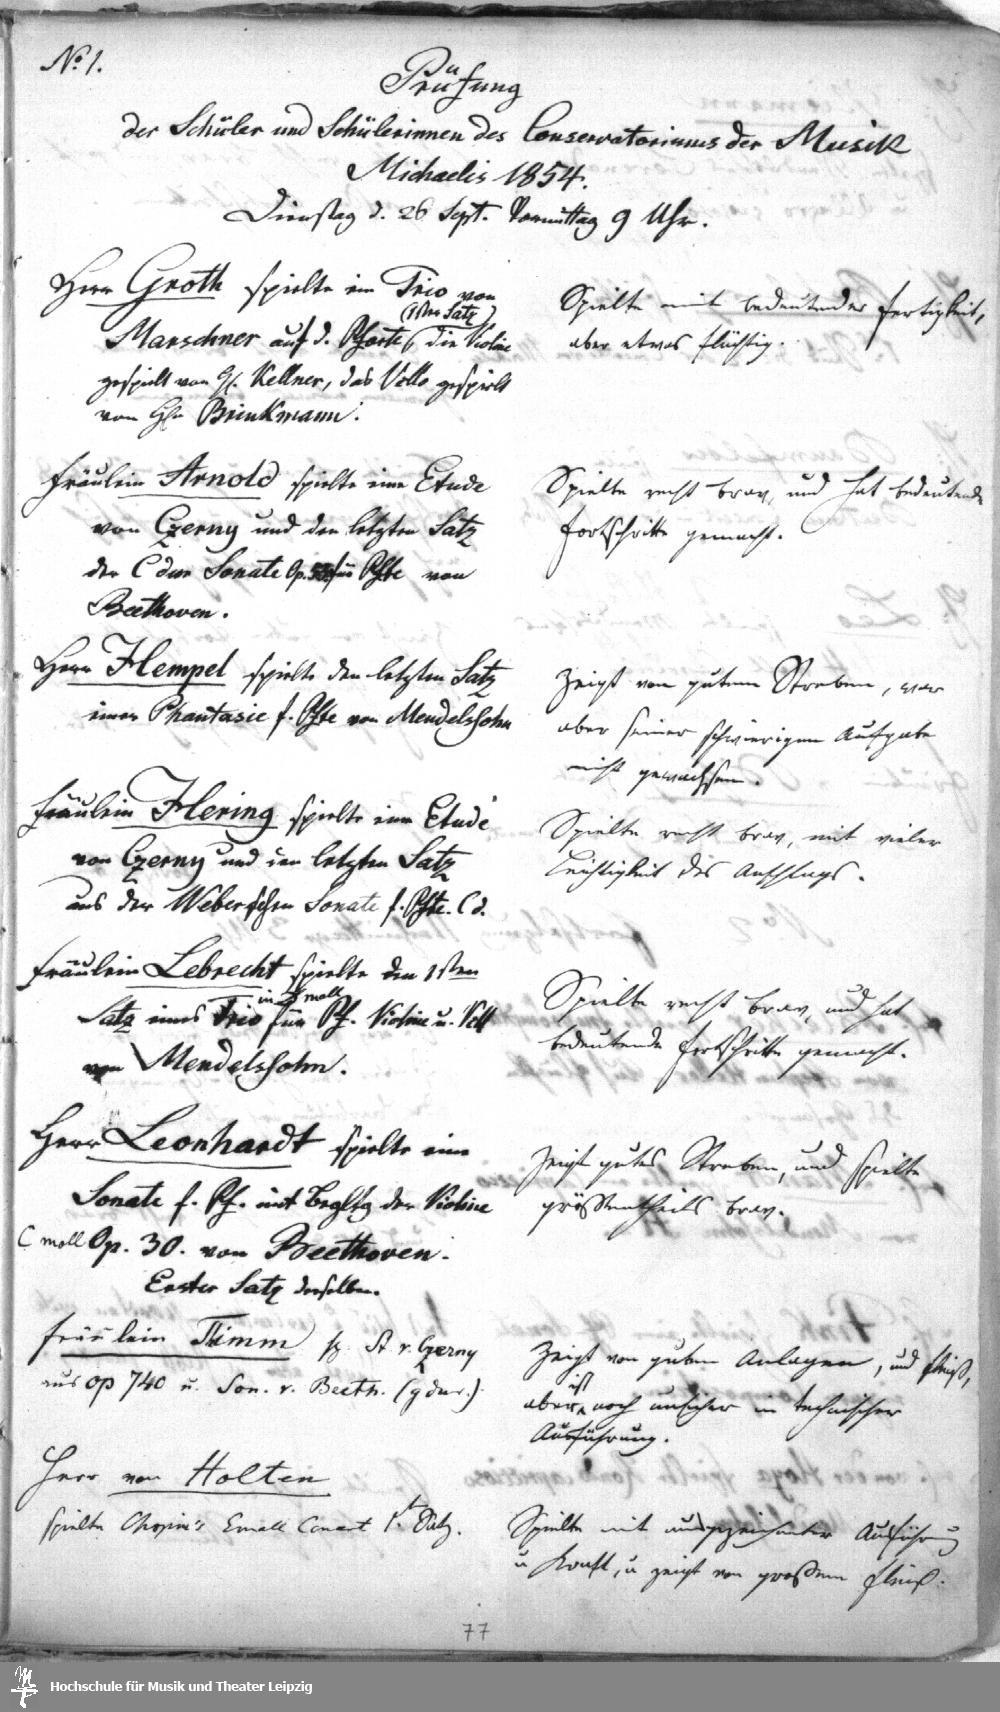 No 1.
Prüfung
der Schüler und Schülerinnen des Conservatoriums der Musik
Michaelis 1854.
Dienstag d. 26 Sept. Vormittag 9 Uhr.
Herr Groth spielte ein Trio von
(1ster Satz)
Marschner auf d. Pforte, die Violine
gespielt von H. Kellner, das Vcllo gespielt
von Hrn Brinkmann.
Spielte mit bedeutender Fertigkeit,
aber etwas flüchtig.
Fräulein Arnold spielte eine Etude
von Czerny und den letzten Satz
der C dur Sonate Op. 53 für Pfte von
Beethoven.
Spielte recht brav, und hat bedeutende
Fortschritte gemacht.
Herr Hempel spielte den letzten Satz
einer Phantasie f. Pfte von Mendelssohn
Zeigt von gutem Streben, war
aber seiner schwierigen Aufgabe
nicht gewachsen.
Fräulein Hering spielte eine Etude
von Czerny und den letzten Satz
aus der Weberschen Sonate f. Pfte. C d.
Spielte recht brav, mit vieler
Leichtigkeit des Anschlags.
Fräulein Lebrecht spielte den 1sten
in D moll
Satz eines Trio für Pf. Violine u. Vell
von Mendelssohn.
Spielte recht brav, und hat
bedeutende Fortschritte gemacht.
Herr Leonhardt spielte eine
Sonate f. Pf. mit Begltg der Violine
C moll Op. 30. von Beethoven.
Erster Satz derselben.
Zeigt gutes Streben, und spielte
größtentheils brav.
Fräulein Timm sp. St. v. Czerny
aus op 740 u. Son. v. Beeth. (g dur.)
Zeigt von guten Anlagen, und Fleiß,
ist
aber noch unsicher in technischer
Ausführung.
Herr von Holten
spielte Chopin's Emoll Concert 1. Satz.
Spielte mit ausgezeichneter Ausführung
u Kraft, u zeigt von großem Fleiß.
77
Hochschule für Musik und Theater Leipzig